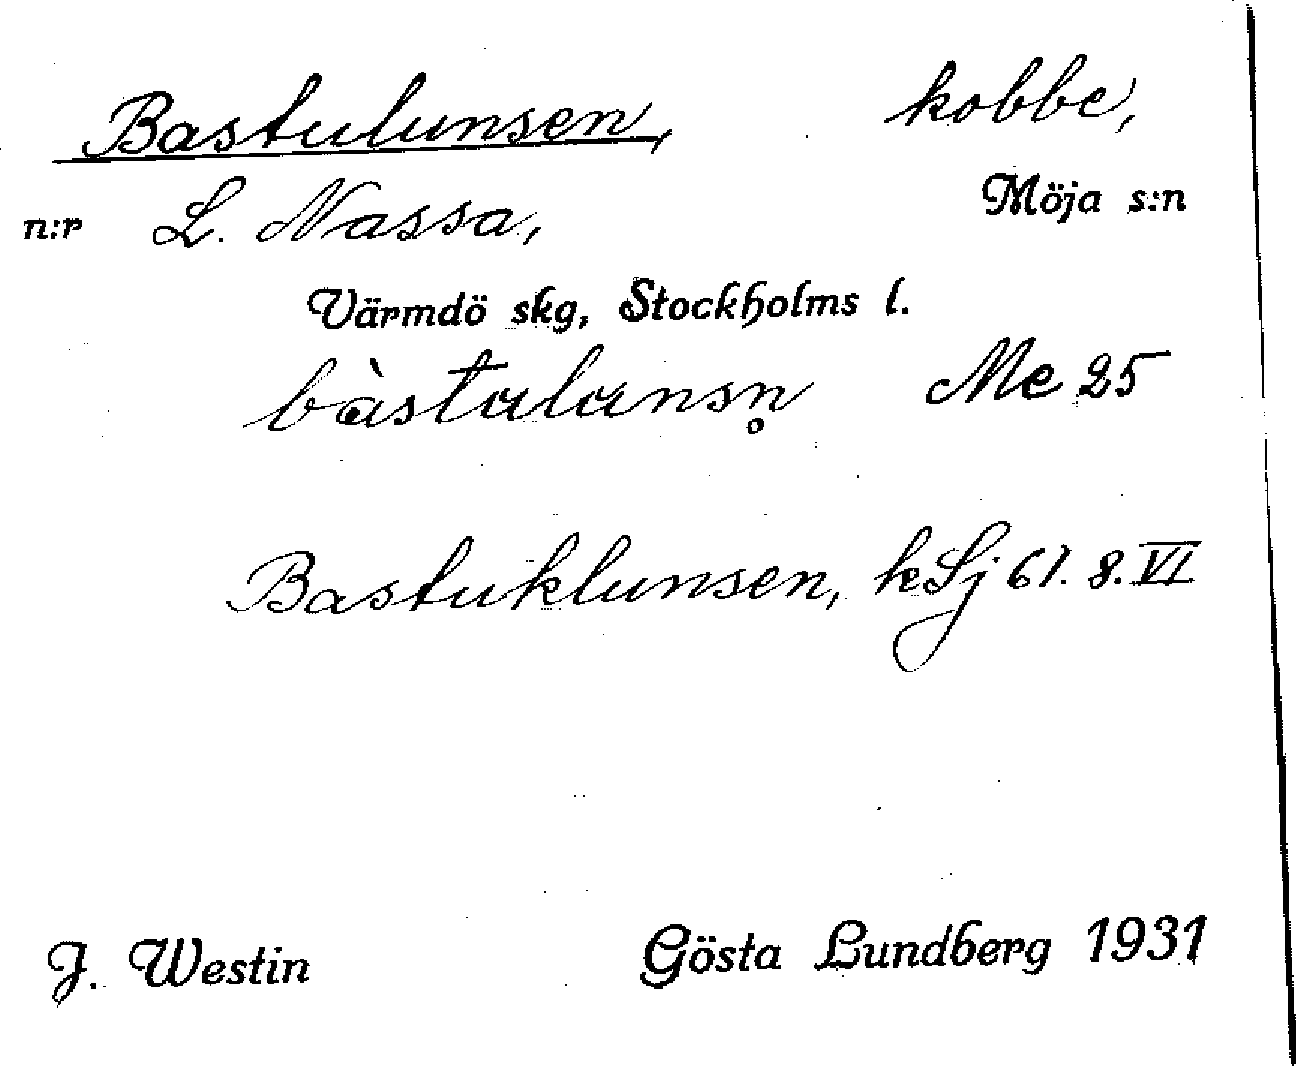 Bastulunsen, kobbe,
n:r L. Nassa, Möja s:n
Värmdö skg, Stockholms l.
bàstalansn̥ Me 25
Bastuklunsen, k Sj 61. 8. VI
J. Westin Gösta Lundberg 1931